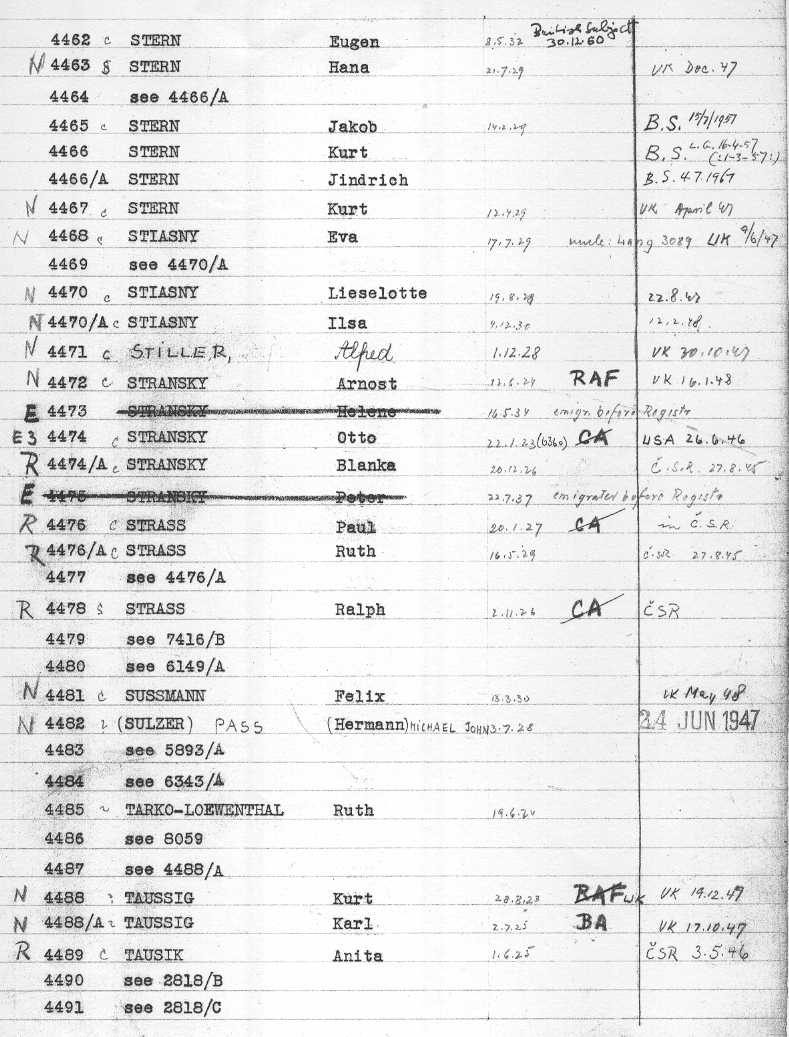 British Subject
4462 c STERN Eugen 8.5.32 30.12.60
N 4463 S STERN Hana 21.7.29 UK Dec. 47
4464 see 4466/A
4465 c STERN Jakob 14.2.29 B.S.
4466 STERN Kurt B.S. L.G. 16-4-57 (:1-3-57:)
4466/A STERN Jindrich B.S. 4.7.1967
N 4467 c STERN Kurt 12.4.29 UK April 47
N 4468 c STIASNY Eva 17.7.29 3089 UK 9/6/47
4469 see 4470/A
N 4470 c STIASNY Lieselotte 19.8.28 22.8.47
N 4470/A c STIASNY Ilsa 4.12.30 12.2.48.
N 4471 c STILLER, Alfred 1.12.28 UK 30.10.47
N 4472 c STRANSKY Arnost 12.6.24 RAF UK 16.1.48
E 4473 STRANSKY Helene 16.5.34 emigr. before Registr
E3 4474 c STRANSKY Otto 22.1.23 (6360) CA USA 26.6.46
R 4474/A c STRANSKY Blanka 20.12.26 Č.S.R. 27.8.45
E 4475 STRANSKY Peter 22.7.37 emigrated before Registr
R 4476 c STRASS Paul 20.1.27 CA in Č.S.R.
R 4476/A c STRASS Ruth 16.5.29 Č.S.R. 27.8.45
4477 see 4476/A
R 4478 S STRASS Ralph 2.11.26 CA ČSR
4479 see 7416/B
4480 see 6149/A
N 4481 c SUSSMANN Felix 13.3.30 UK May 48
N 4482 (SULZER) PASS (Hermann) MICHAEL JOHN 3.7.28 24 JUN 1947
4483 see 5893/A
4484 see 6343/A
4485 TARKO-LOEWENTHAL Ruth 19.6.24
4486 see 8059
4487 see 4488/A
N 4488 TAUSSIG Kurt 28.8.23 RAF UK UK 19.12.47
N 4488/A TAUSSIG Karl 2.7.25 BA UK 17.10.47
R 4489 c TAUSIK Anita 1.6.25 ČSR 3.5.46
4490 see 2818/B
4491 see 2818/C